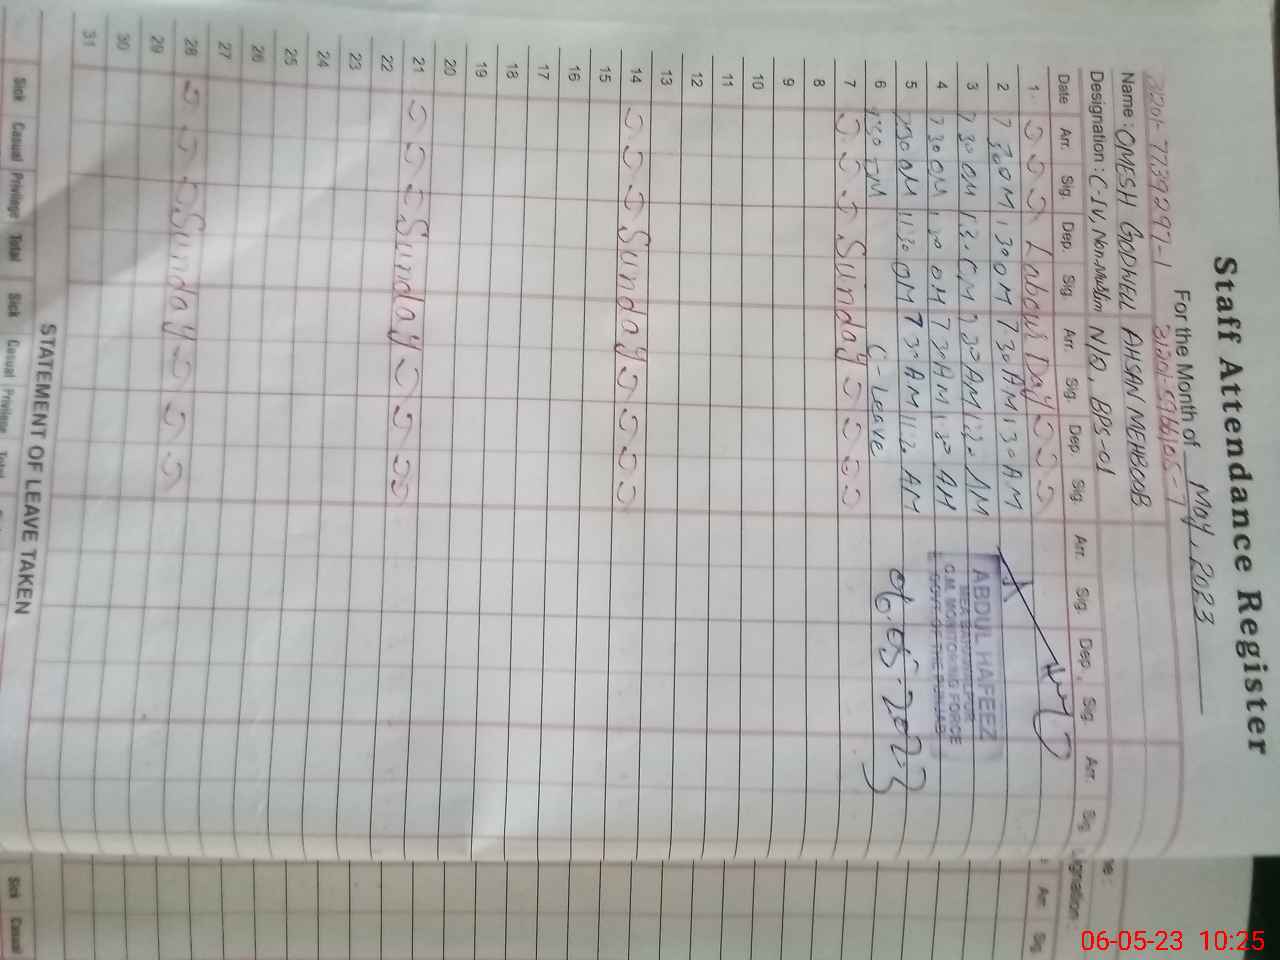 Staff Attendance Register
For the Month of May, 2023
31201-7739297-1
Name: OMESH GODWELL AHSAN MEHBOOB
Designation: C-IV, Non.Muslim N/Q, BPS-01
Date Arr. Sig. Dep. Sig. Arr. Sig. Dep. Sig. Arr. Sig. Dep. Sig. Arr. Sig
1. Labour Day
2 7 30 OM 1 30 OM 7 30 AM 1 30 AM
3 7 30 OM 7 30 AM
4 7 30 OM 1 30 OM 7 30 AM 1 30 AM
5 7 30 OM 11 30 OM 7 30 AM
6 7 30 OM C-Leave
7 Sunday
8
9
10
11
12
13
14 Sunday
15
16
17
18
19
20
21 Sunday
22
23
24
25
26
27
28 Sunday
29
30
31
ABDUL HAFEEZ
MEA BAHAWALPUR
C.M. MONITORING FORCE
GOVT. OF THE PUNJAB
06.05.2023
STATEMENT OF LEAVE TAKEN
Sick Casual Privilege Total Sick Casual Privilege Total
Arr. Sig
Sick Casual
06-05-23 10:25